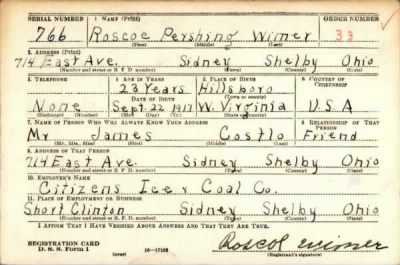 SERIAL NUMBER 1. NAME (Print) ORDER NUMBER
766 Roscoe Pershing Wimer 33
(First) (Middle) (Last)
2. ADDRESS (Print)
714 East Ave. Sidney Shelby Ohio
(Number and street or R. F. D. number) (Town) (County) (State)
3. TELEPHONE 4. AGE IN YEARS 5. PLACE OF BIRTH 6. COUNTRY OF CITIZENSHIP
23 Years Hillsboro
DATE OF BIRTH (Town or county)
None Sept. 22 1917 W. Virginia U S A
(Exchange) (Number) (Mo.) (Day) (Yr.) (State or country)
7. NAME OF PERSON WHO WILL ALWAYS KNOW YOUR ADDRESS 8. RELATIONSHIP OF THAT PERSON
Mr James Costlo Friend
(Mr., Mrs., Miss) (First) (Middle) (Last)
9. ADDRESS OF THAT PERSON
714 East Ave. Sidney Shelby Ohio
(Number and street or R. F. D. number) (Town) (County) (State)
10. EMPLOYER'S NAME
Citizens Ice & Coal Co.
11. PLACE OF EMPLOYMENT OR BUSINESS
Short Clinton Sidney Shelby Ohio
(Number and street or R. F. D. number) (Town) (County) (State)
I AFFIRM THAT I HAVE VERIFIED ABOVE ANSWERS AND THAT THEY ARE TRUE.
REGISTRATION CARD
D. S. S. Form 1 (over) 16—17105 (Registrant's signature)